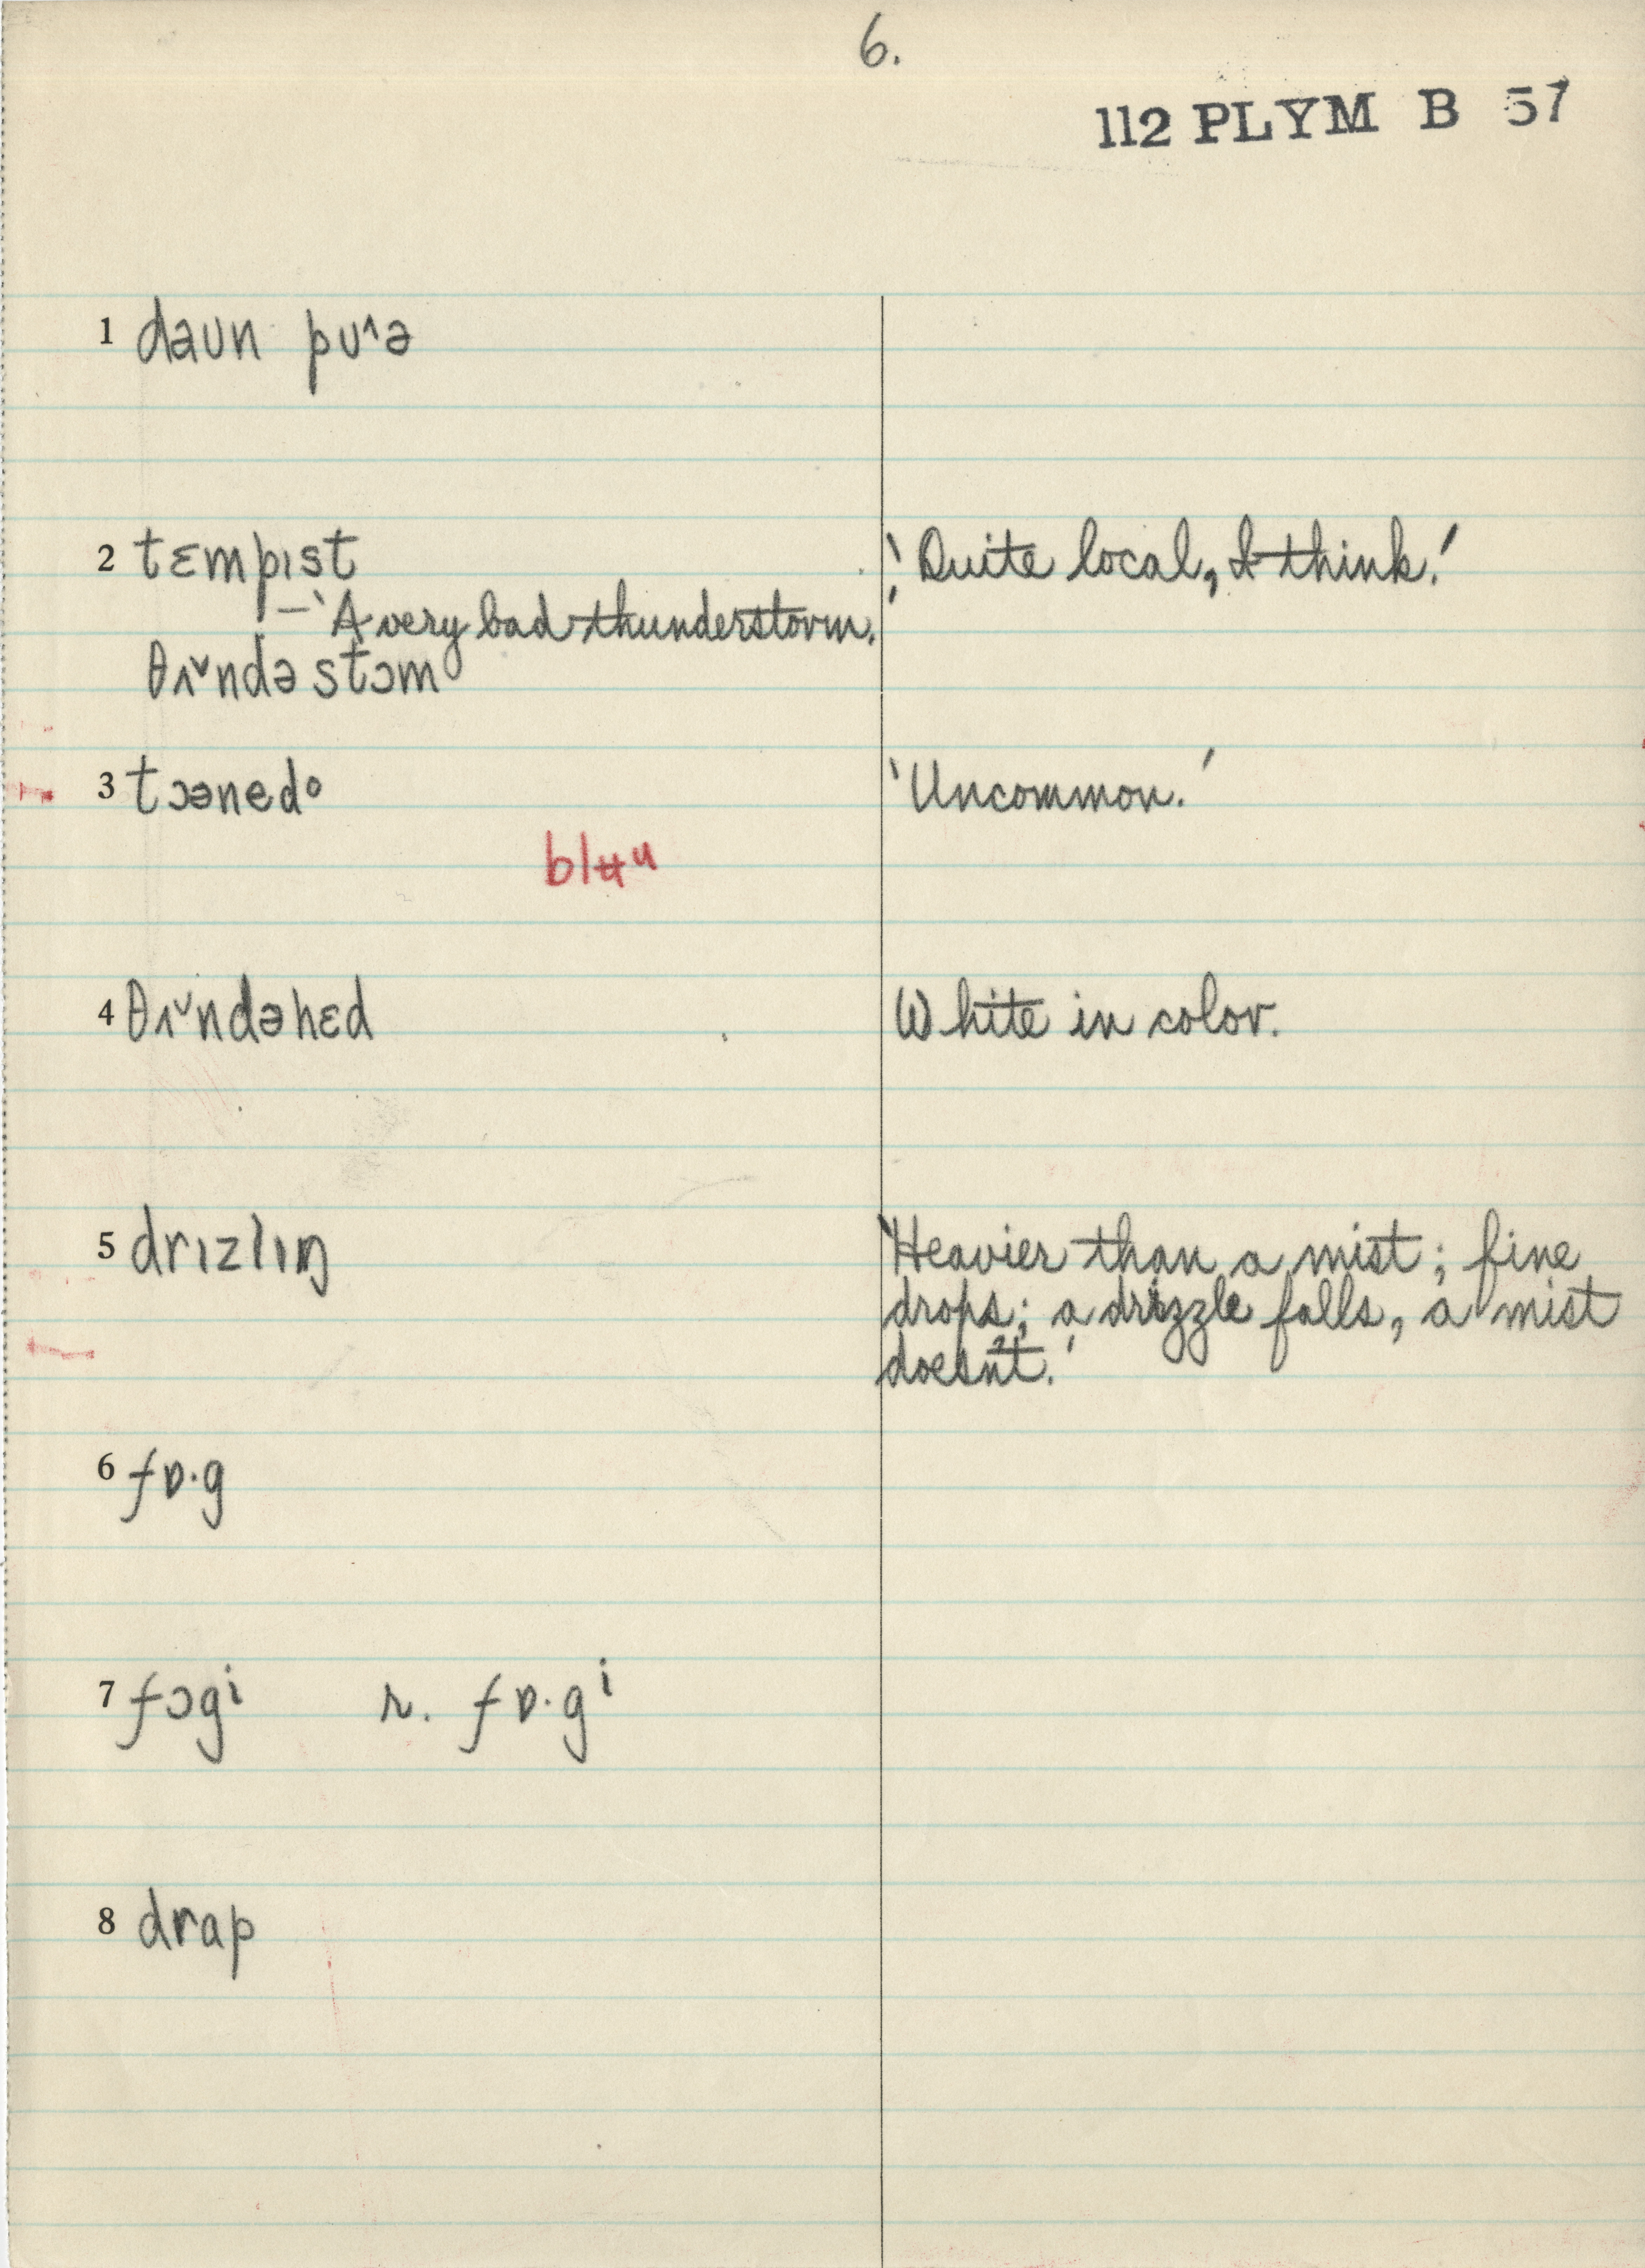 6.
112 PLYM B 57
1 daʊn pʊ˄ə
2 tɛmpɪst 'Quite local, I think.'
– 'A very bad thunderstorm.'
θʌ˅ndə stɔm
3 tɔənedᵒ 'Uncommon.'
blʉᵘ
4 θʌ˅ndəhɛd White in color.
5 drɪzlɪŋ 'Heavier than a mist; fine
drops; a drizzle falls, a mist
doesn't.'
6 fɒ·g
7 fɔgⁱ r. fɒ·gⁱ
8 drap